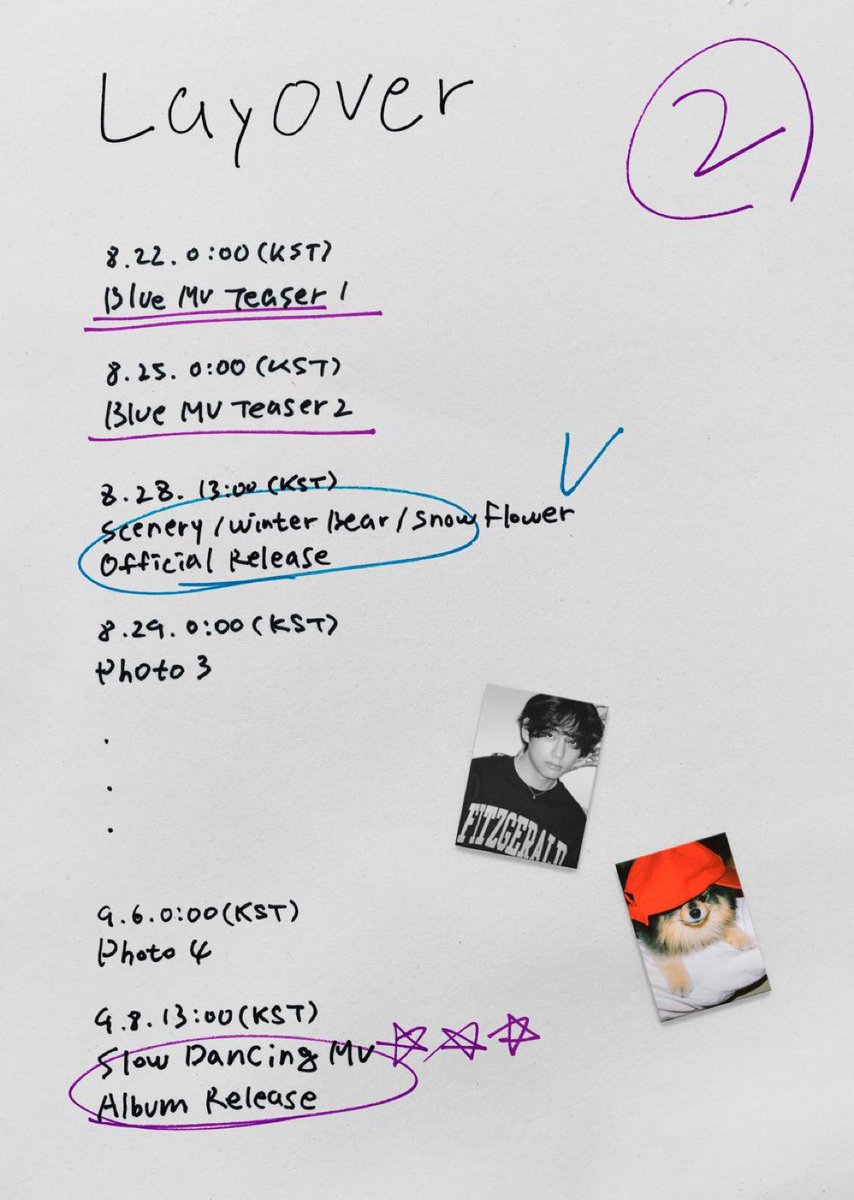 Layover
2
8.22. 0:00 (KST)
Blue MV Teaser 1
8.25. 0:00 (KST)
Blue MV Teaser 2
8.28. 13:00 (KST)
Scenery / Winter Bear / Snow Flower
Official Release
8.29. 0:00 (KST)
Photo 3
.
.
.
FITZGERALD
9.6.0:00 (KST)
Photo 4
9.8.13:00 (KST)
Slow Dancing MV
Album Release